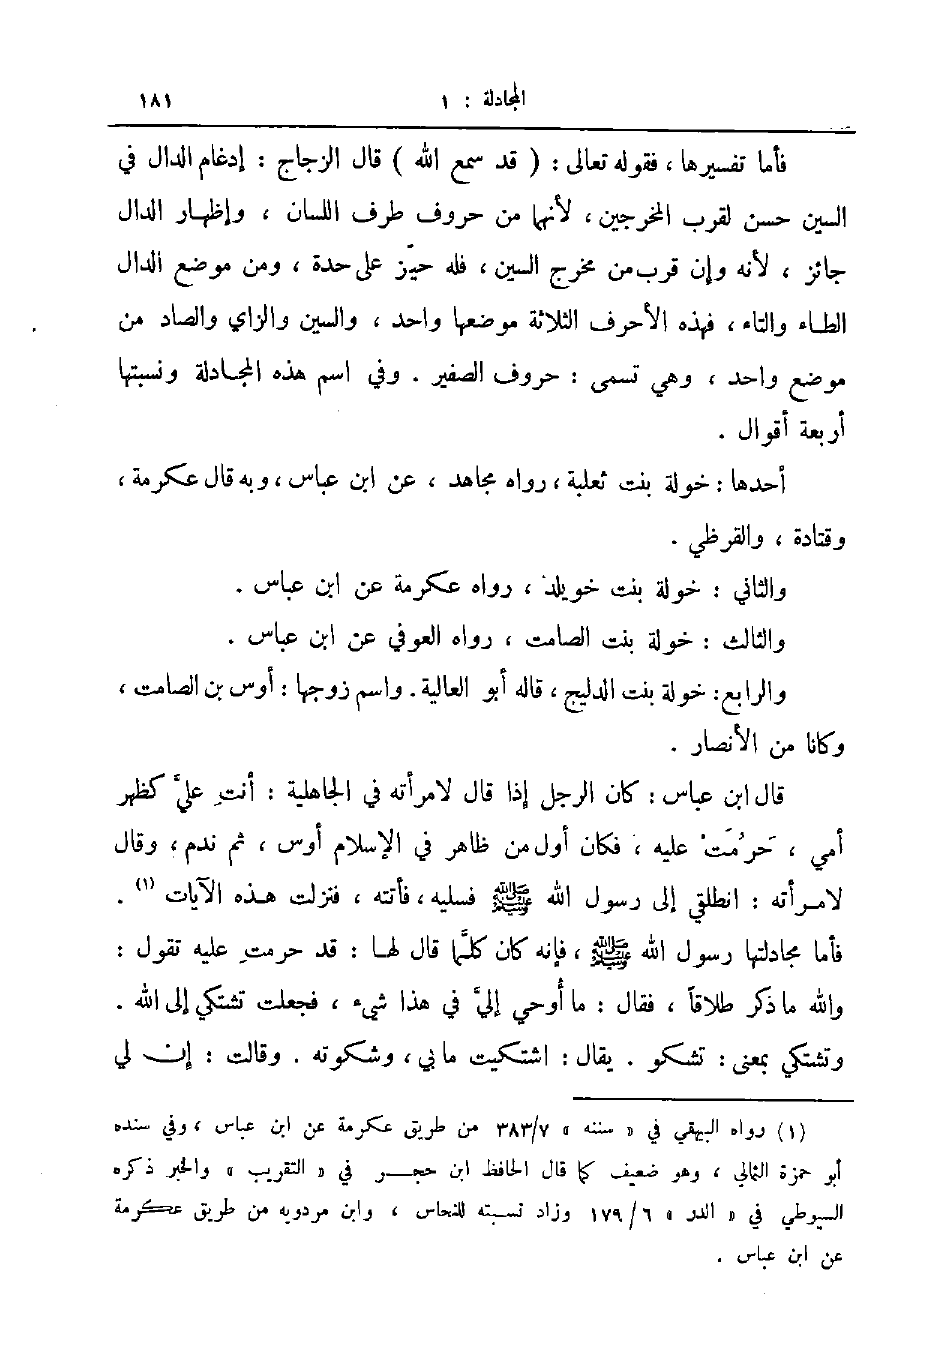 المجادلة : ١ ١٨١
فأما تفسيرها ، فقوله تعالى : ( قد سمع الله ) قال الزجاج : إدغام الدال في
السين حسن لقرب المخرجين ، لأنها من حروف طرف اللسان ، وإظهار الدال
جائز ، لأنه وإن قرب من مخرج السين ، فله حيّز على حدة ، ومن موضع الدال
الطاء والتاء ، فهذه الأحرف الثلاثة موضعها واحد ، والسين والزاي والصاد من
موضع واحد ، وهي تسمى : حروف الصفير . وفي اسم هذه المجادلة ونسبتها
أربعة أقوال .
أحدها : خولة بنت ثعلبة ، رواه مجاهد ، عن ابن عباس ، وبه قال عكرمة ،
وقتادة ، والقرظي .
والثاني : خولة بنت خويلد ، رواه عكرمة عن ابن عباس .
والثالث : خولة بنت الصامت ، رواه العوفي عن ابن عباس .
والرابع : خولة بنت الدليج ، قاله أبو العالية . واسم زوجها : أوس بن الصامت ،
وكانا من الأنصار .
قال ابن عباس : كان الرجل إذا قال لامرأته في الجاهلية : أنتِ عليَّ كظهر
أمي ، حَرُمَتْ عليه ، فكان أول من ظاهر في الإسلام أوس ، ثم ندم ، وقال
لامرأته : انطلقي إلى رسول الله ﷺ فسليه ، فأتته ، فنزلت هذه الآيات (١) .
فأما مجادلتها رسول الله ﷺ ، فإنه كان كلَّما قال لها : قد حرمتِ عليه تقول :
والله ما ذكر طلاقاً ، فقال : ما أُوحي إليَّ في هذا شيء ، فجعلت تشتكي إلى الله .
وتشتكي بمعنى : تشكو . يقال : اشتكيت ما بي ، وشكوته . وقالت : إن لي
(١) رواه البيهقي في « سننه » ٣٨٣/٧ من طريق عكرمة عن ابن عباس ، وفي سنده
أبو حمزة الثمالي ، وهو ضعيف كما قال الحافظ ابن حجر في « التقريب » والخبر ذكره
السيوطي في « الدر » ١٧٩/٦ وزاد نسبته للنحاس ، وابن مردويه من طريق عكرمة
عن ابن عباس .